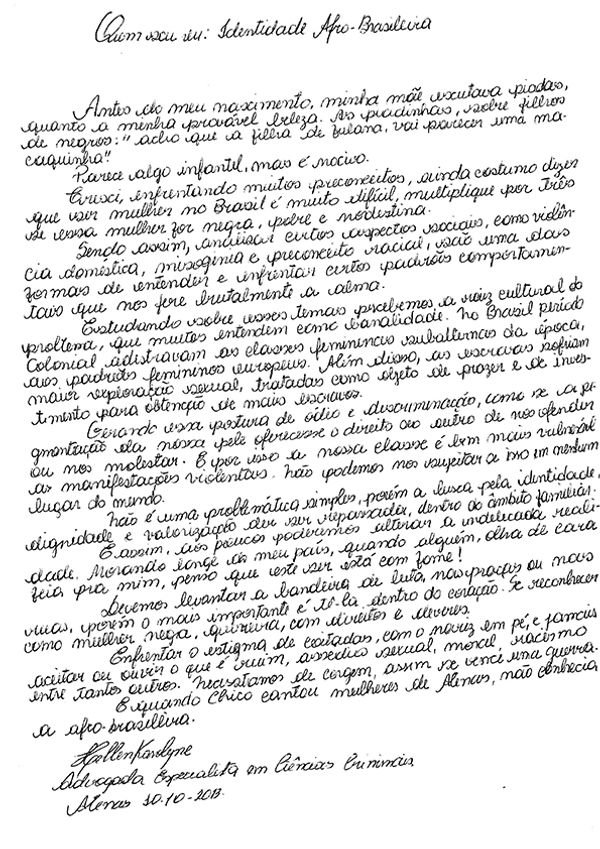 Quem sou eu: Identidade Afro-Brasileira
Antes do meu nascimento, minha mãe escutava piadas,
quanto a minha provável beleza. As piadinhas, sobre filhos
de negros: "acho que a filha de fulana, vai parecer uma ma-
caquinha".
Parece algo infantil, mas é nocivo.
Cresci, enfrentando muitos preconceitos, ainda costumo dizer
que ser mulher no Brasil é muito difícil, multiplique por três
se essa mulher for negra, pobre e nordestina.
Sendo assim, analisar certos aspectos sociais, como violên-
cia doméstica, misoginia e preconceito racial, são uma das
formas de entender e enfrentar certos padrões comportamen-
tais que nos fere brutalmente a alma.
Estudando sobre esses temas percebemos a raiz cultural do
problema, que muitos entendem como banalidade. No Brasil período
Colonial adistravam as classes femininas subalternas da época,
aos padrões femininos europeus. Além disso, as escravas sofriam
maior exploração sexual, tratadas como objeto de prazer e de inves-
timento para obtenção de mais escravos.
Gerando essa postura de ódio e discriminação, como se a pi-
gmentação da nossa pele oferecesse o direito ao outro de nos ofender
ou nos molestar. E por isso a nossa classe é bem mais vulnerável
as manifestações violentas. Não podemos nos sujeitar a isso em nenhum
lugar do mundo.
Não é uma problemática simples, porém a busca pela identidade,
dignidade e valorização der ser repassada, dentro do âmbito familiar.
E assim, aos poucos poderemos alterar a indelicada reali-
dade. Morando longe do meu país, quando alguém, olha de cara
feia pra mim, penso que este ser está com fome!
Devemos levantar a bandeira de luta, nas praças ou nas
ruas, porém o mais importante é tê-la dentro do coração. Se reconhecer
como mulher negra, guerreira, com direitos e deveres.
Enfrentar o estigma de coitadas, com o nariz em pé, e jamais
aceitar ou ouvir o que é ruim, assédio sexual, moral, racismo
entre tantos outros. Necessitamos de coragem, assim se vence uma guerra.
E quando Chico cantou mulheres de Atenas, não conhecia
a afro-brasileira.
Hellen Karolyne
Advogada Especialista em Ciências Criminais
Atenas 30.10-2013